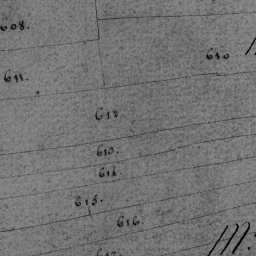 608.
610
611.
612
613.
614
615.
616.
617.